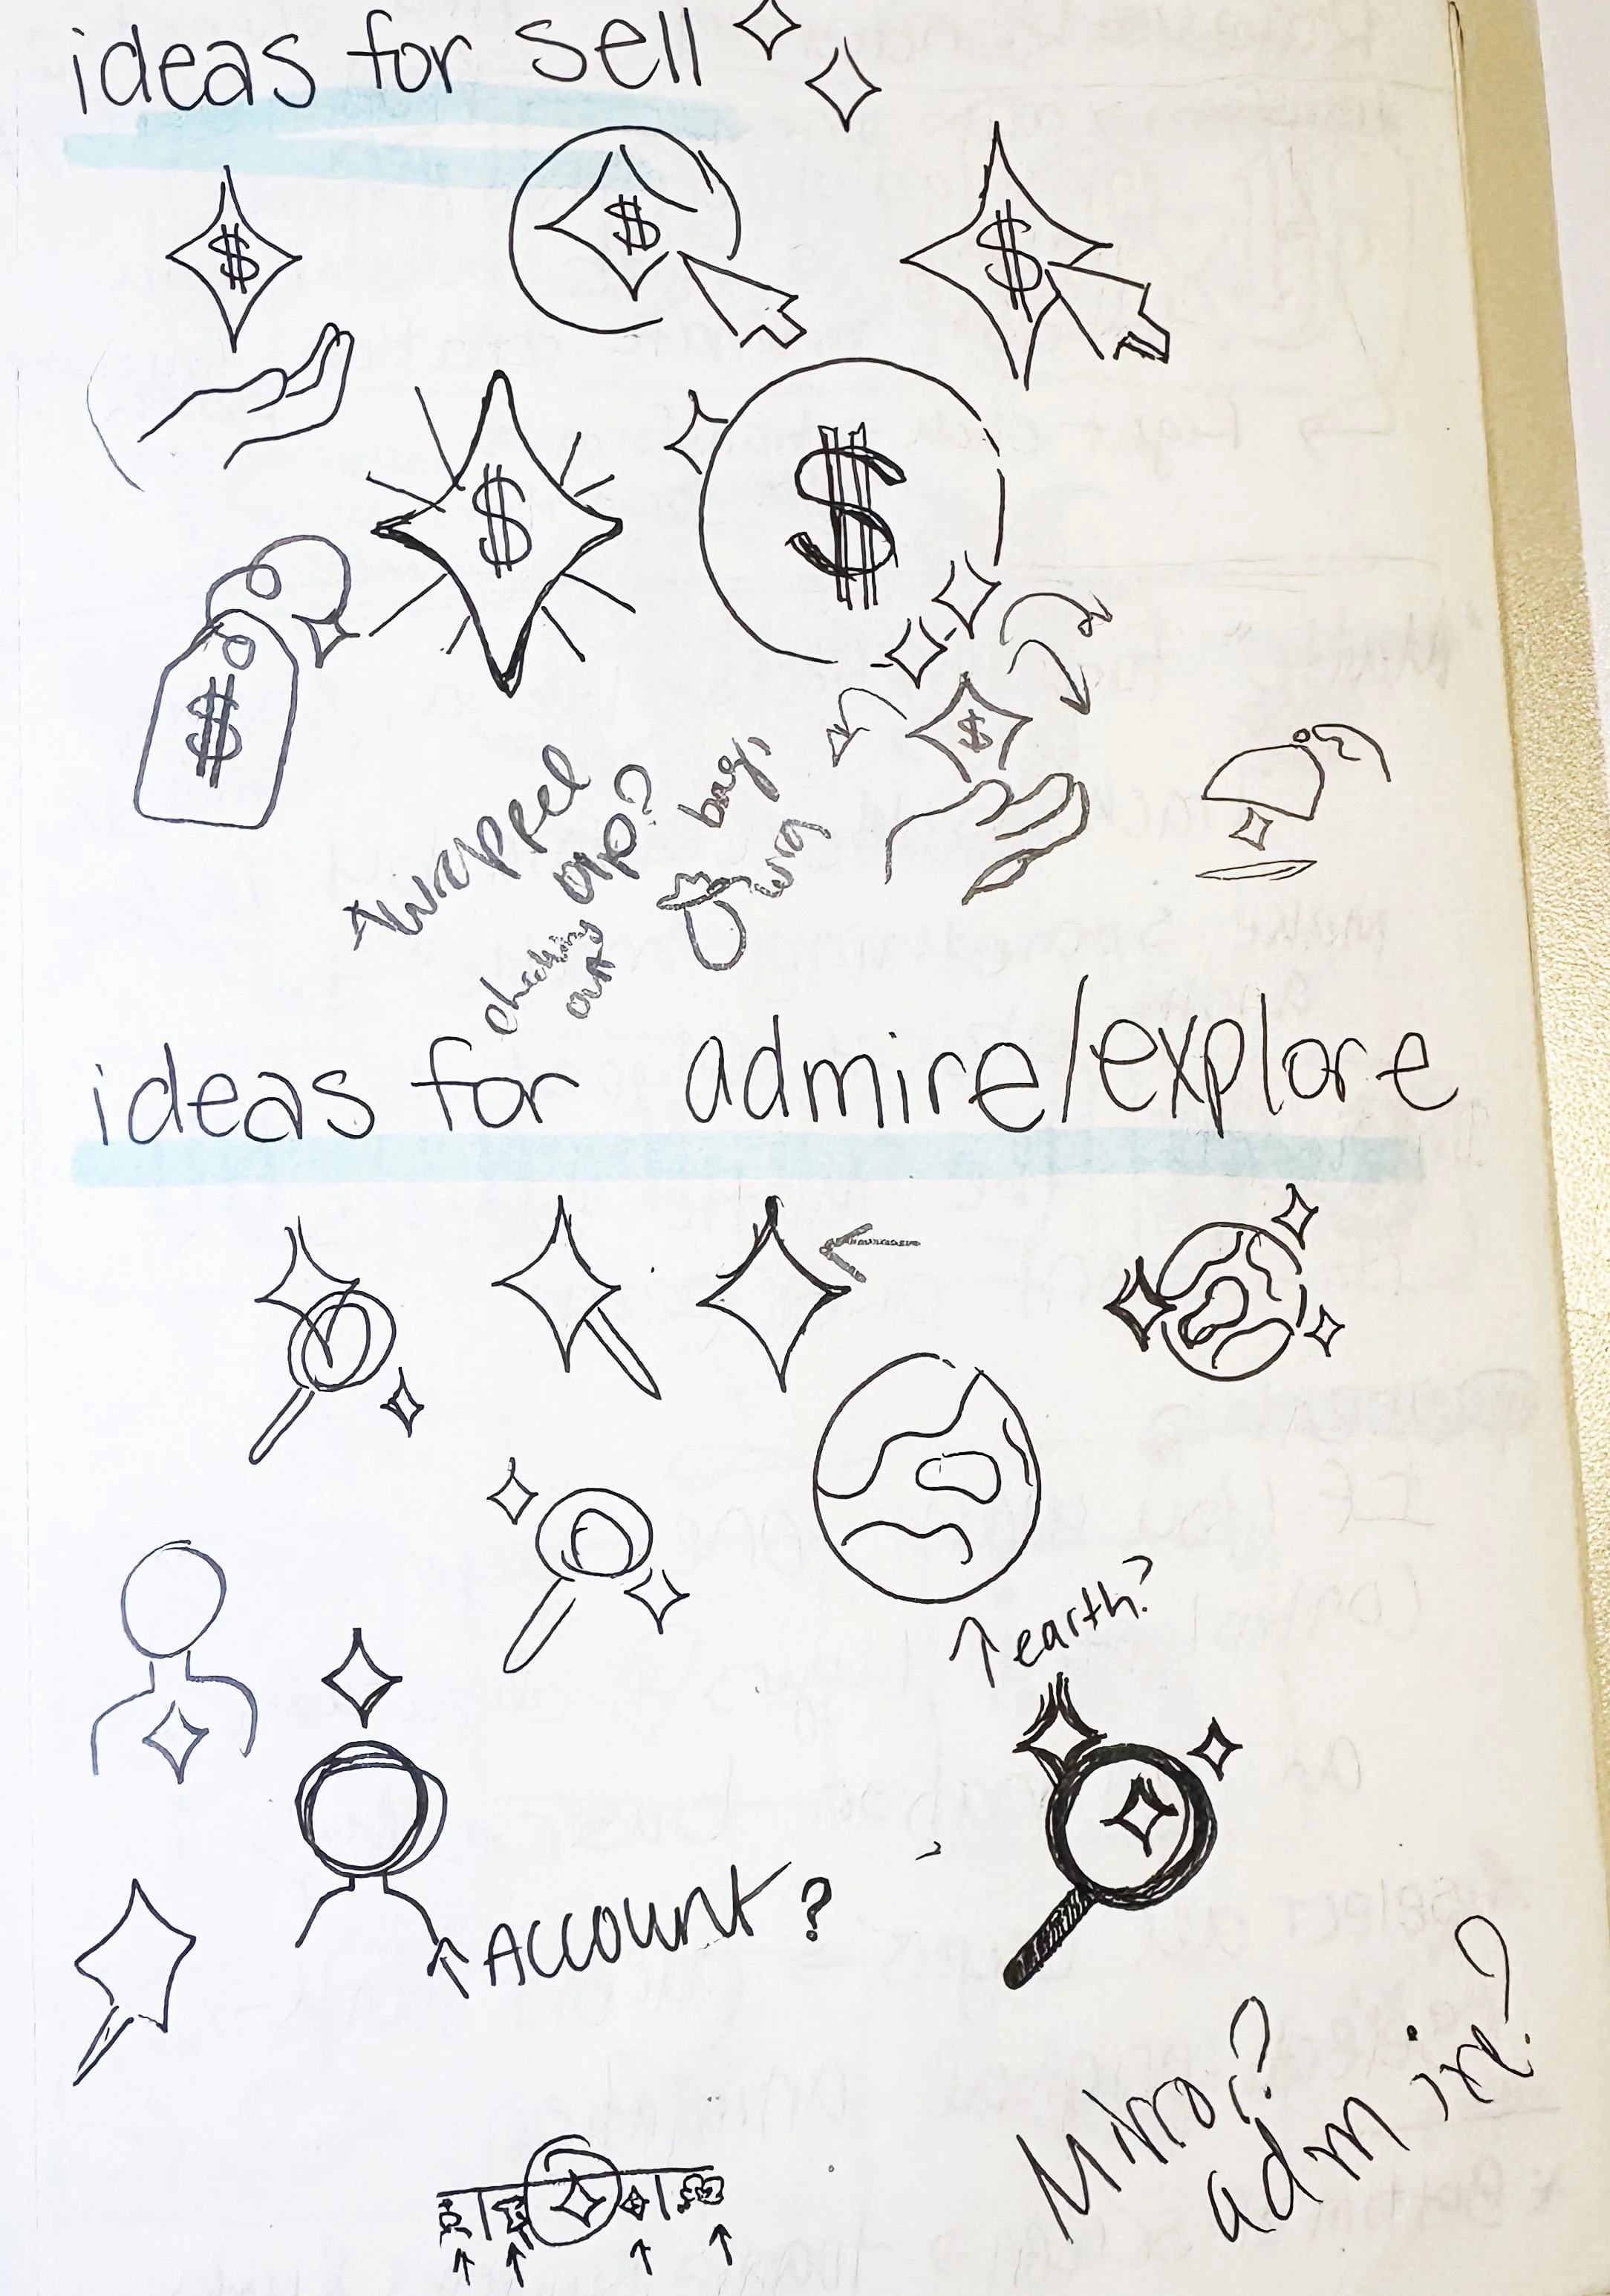 ideas for sell
$
$
$
$
$
$
$
wrapped
up?
checking
out
bag,
ideas for admire/explore
↑ earth?
↑ Account?
Mirror?
admire?